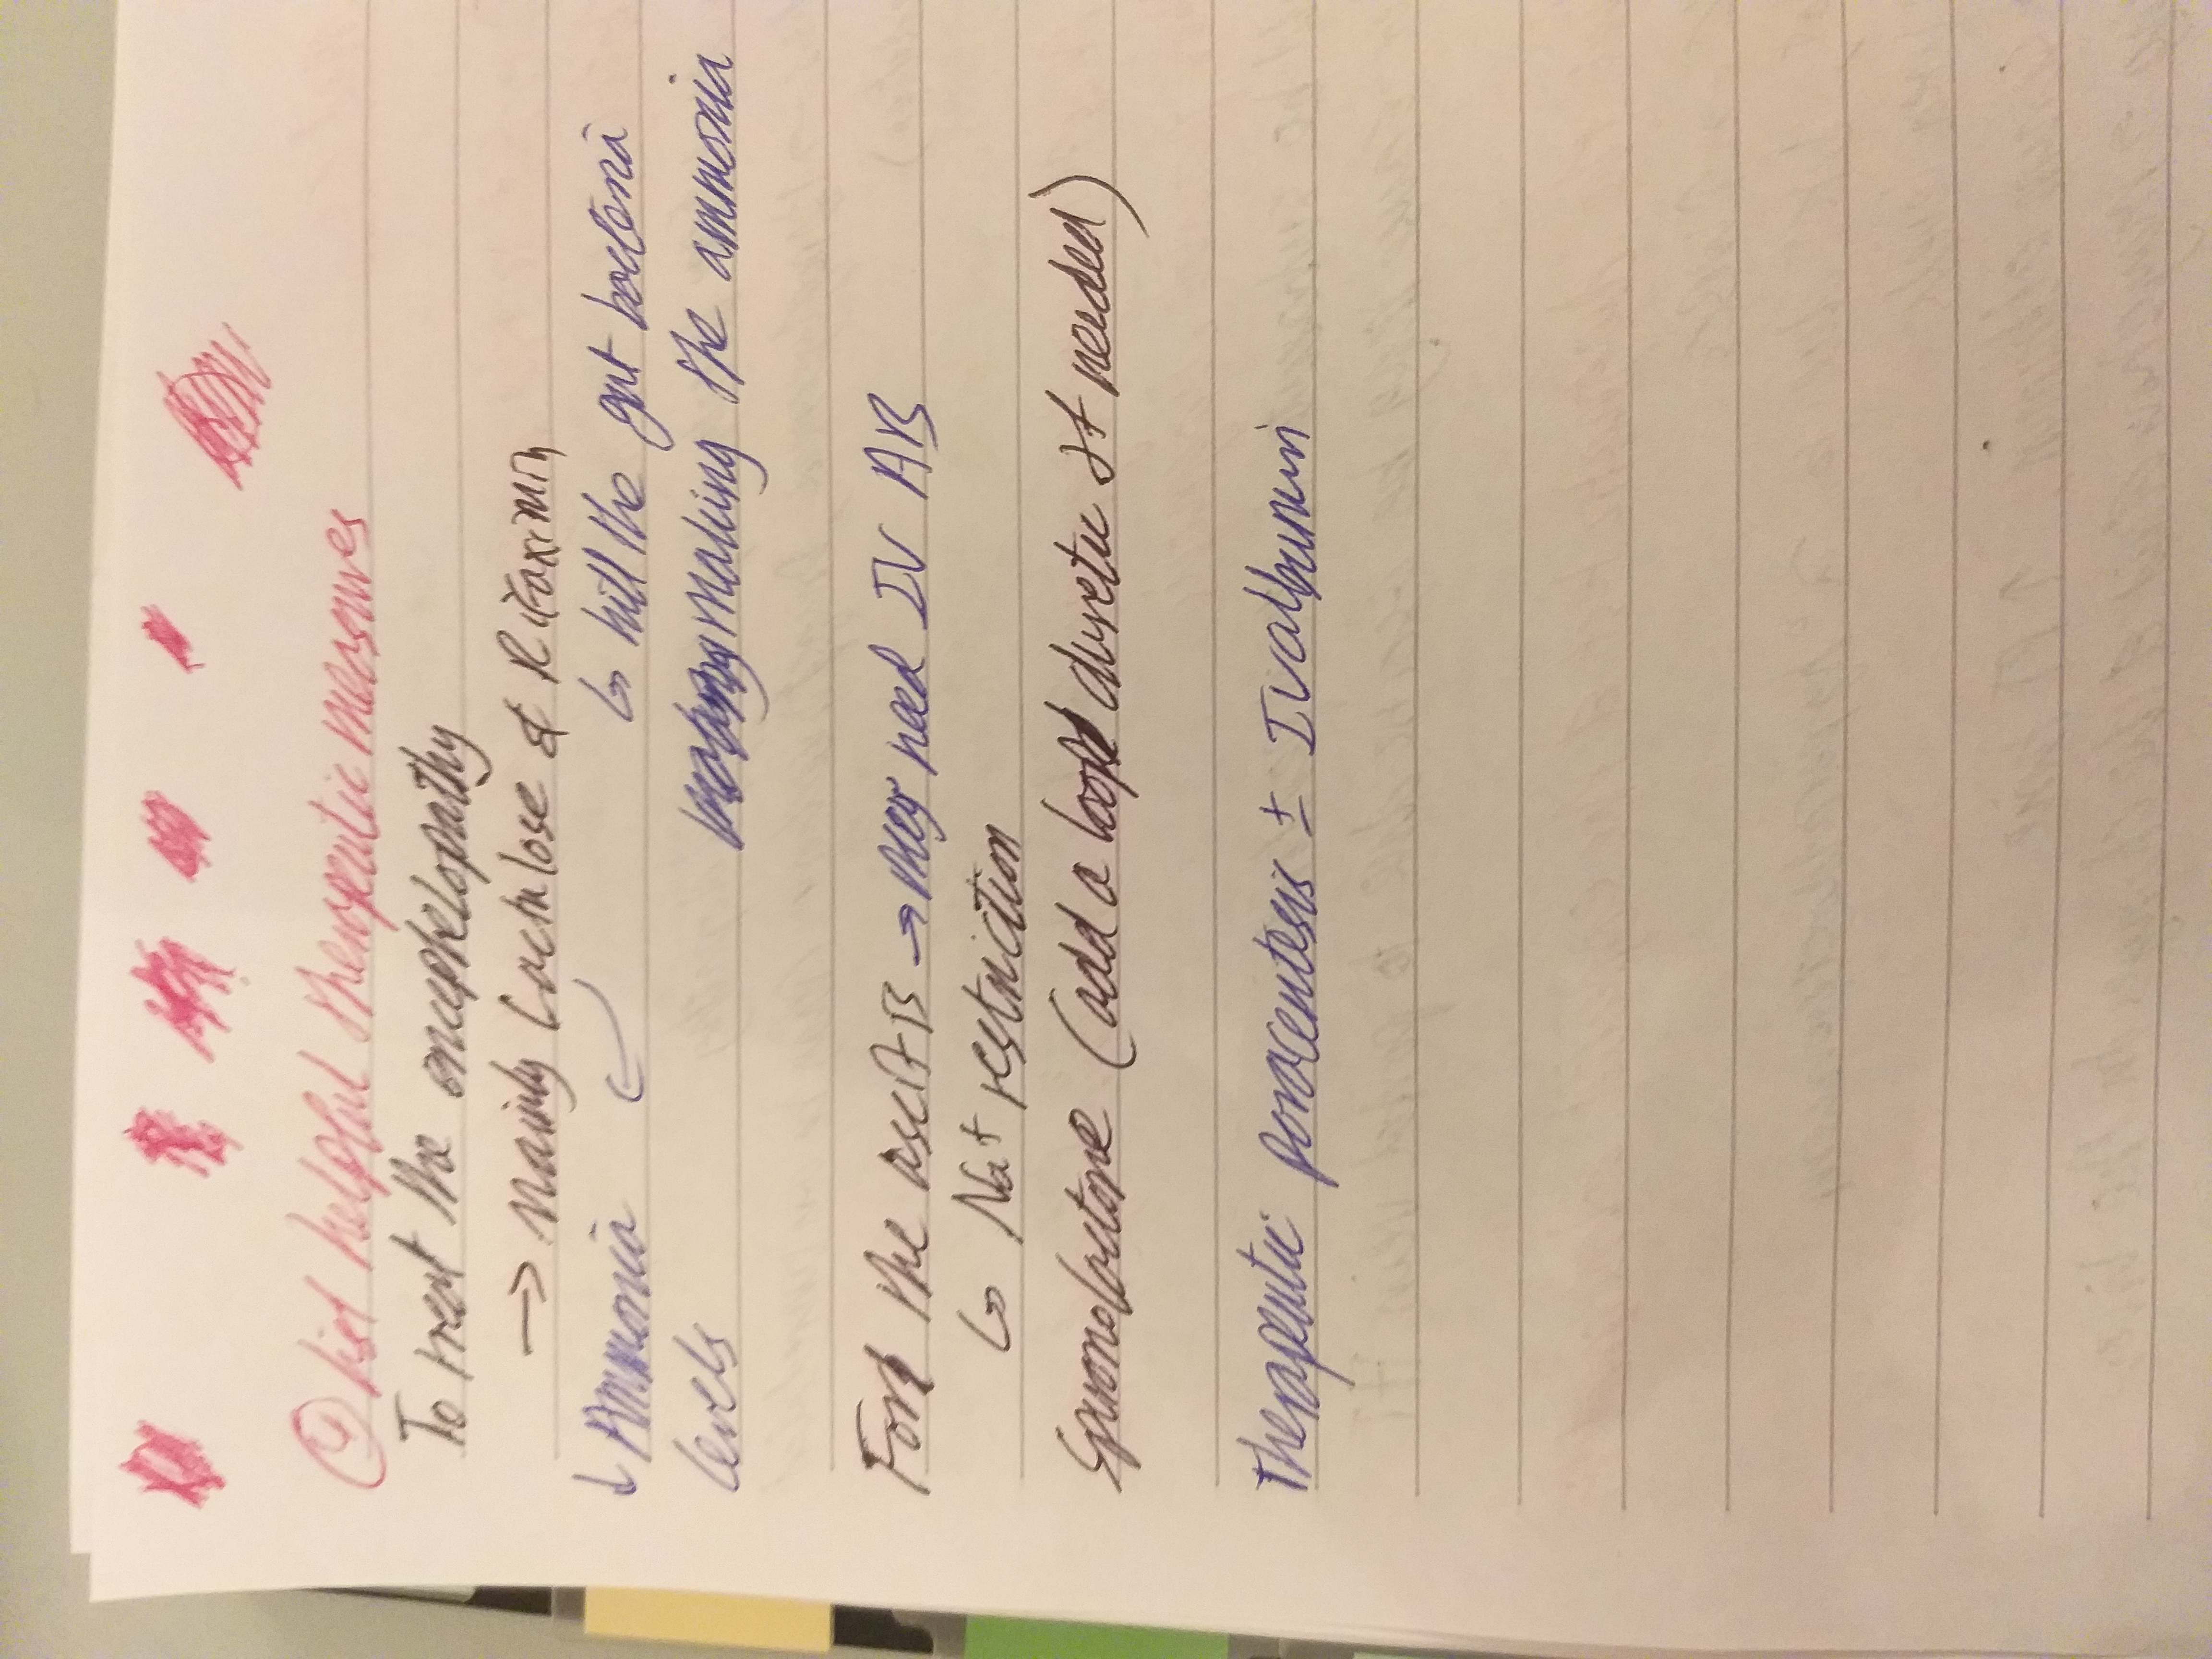 ④ List helpful therapeutic measures
To treat the encephelopathy
→ mainly Lactulose & Rifaximin
↓ Ammonia levels
↳ kill the gut bacteria making the ammonia
For the ascitis → may need IV AB
↳ Na+ restriction
Spironolactone (add a loop diuretic if needed)
Therapeutic paracentesis ± IV albumin